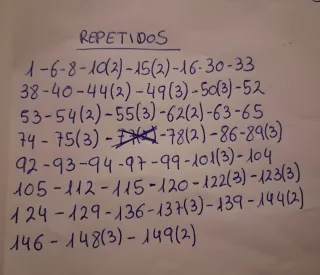 REPETIDOS
1-6-8-10(2)-15(2)-16-30-33
38-40-44(2)-49(3)-50(3)-52
53-54(2)-55(3)-62(2)-63-65
74-75(3)-78(2)-86-89(3)
92-93-94-97-99-101(3)-104
105-112-115-120-122(3)-123(3)
124-129-136-137(3)-139-144(2)
146-148(3)-149(2)